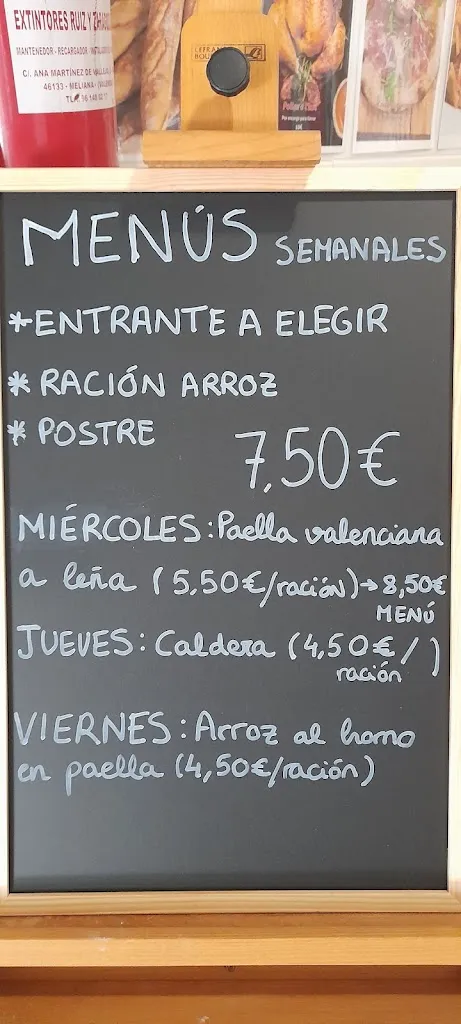 EXTINTORES RUIZ Y
MANTENEDOR - RECARGADOR
C/. ANA MARTÍNEZ DE
46133 - MELIANA
MENÚS SEMANALES
* ENTRANTE A ELEGIR
* RACIÓN ARROZ
* POSTRE
7,50€
MIÉRCOLES: Paella valenciana
a leña (5,50€/ración)→8,50€
MENÚ
JUEVES: Caldera (4,50€/ )
ración
VIERNES: Arroz al horno
en paella (4,50€/ración)